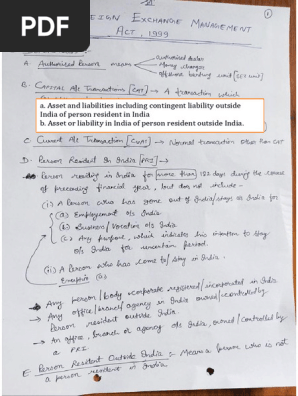 PDF
FOREIGN EXCHANGE MANAGEMENT
ACT, 1999
A. Authorised Person means
Authorised dealer
Money changer
offshore banking unit [SEZ unit]
B. CAPITAL A/c Transactions [CAT] → A transaction which
a. Asset and liabilities including contingent liability outside
India of person resident in India
b. Asset or liability in India of person resident outside India.
C. Current A/c Transaction → Normal transaction other than CAT
D. Person Resident In India [PRI] →
Person residing in India for more than 182 days during the course
of preceding financial year, but does not include -
(i) A Person who has gone out of India/stays o/s India for
(a) Employment o/s India.
(b) Business/Vocation o/s India
(c) Any purpose, which indicates his intention to stay
o/s India for uncertain period.
(ii) A Person who has come to/stay in India.
→ Any person/body corporate registered/incorporated in India
→ Any office/branch/agency in India owned/controlled by
Person resident outside India.
→ An office, branch or agency o/s India, owned/controlled by
a PRI.
E. Person Resident Outside India :- Means a person who is not
a person resident in India